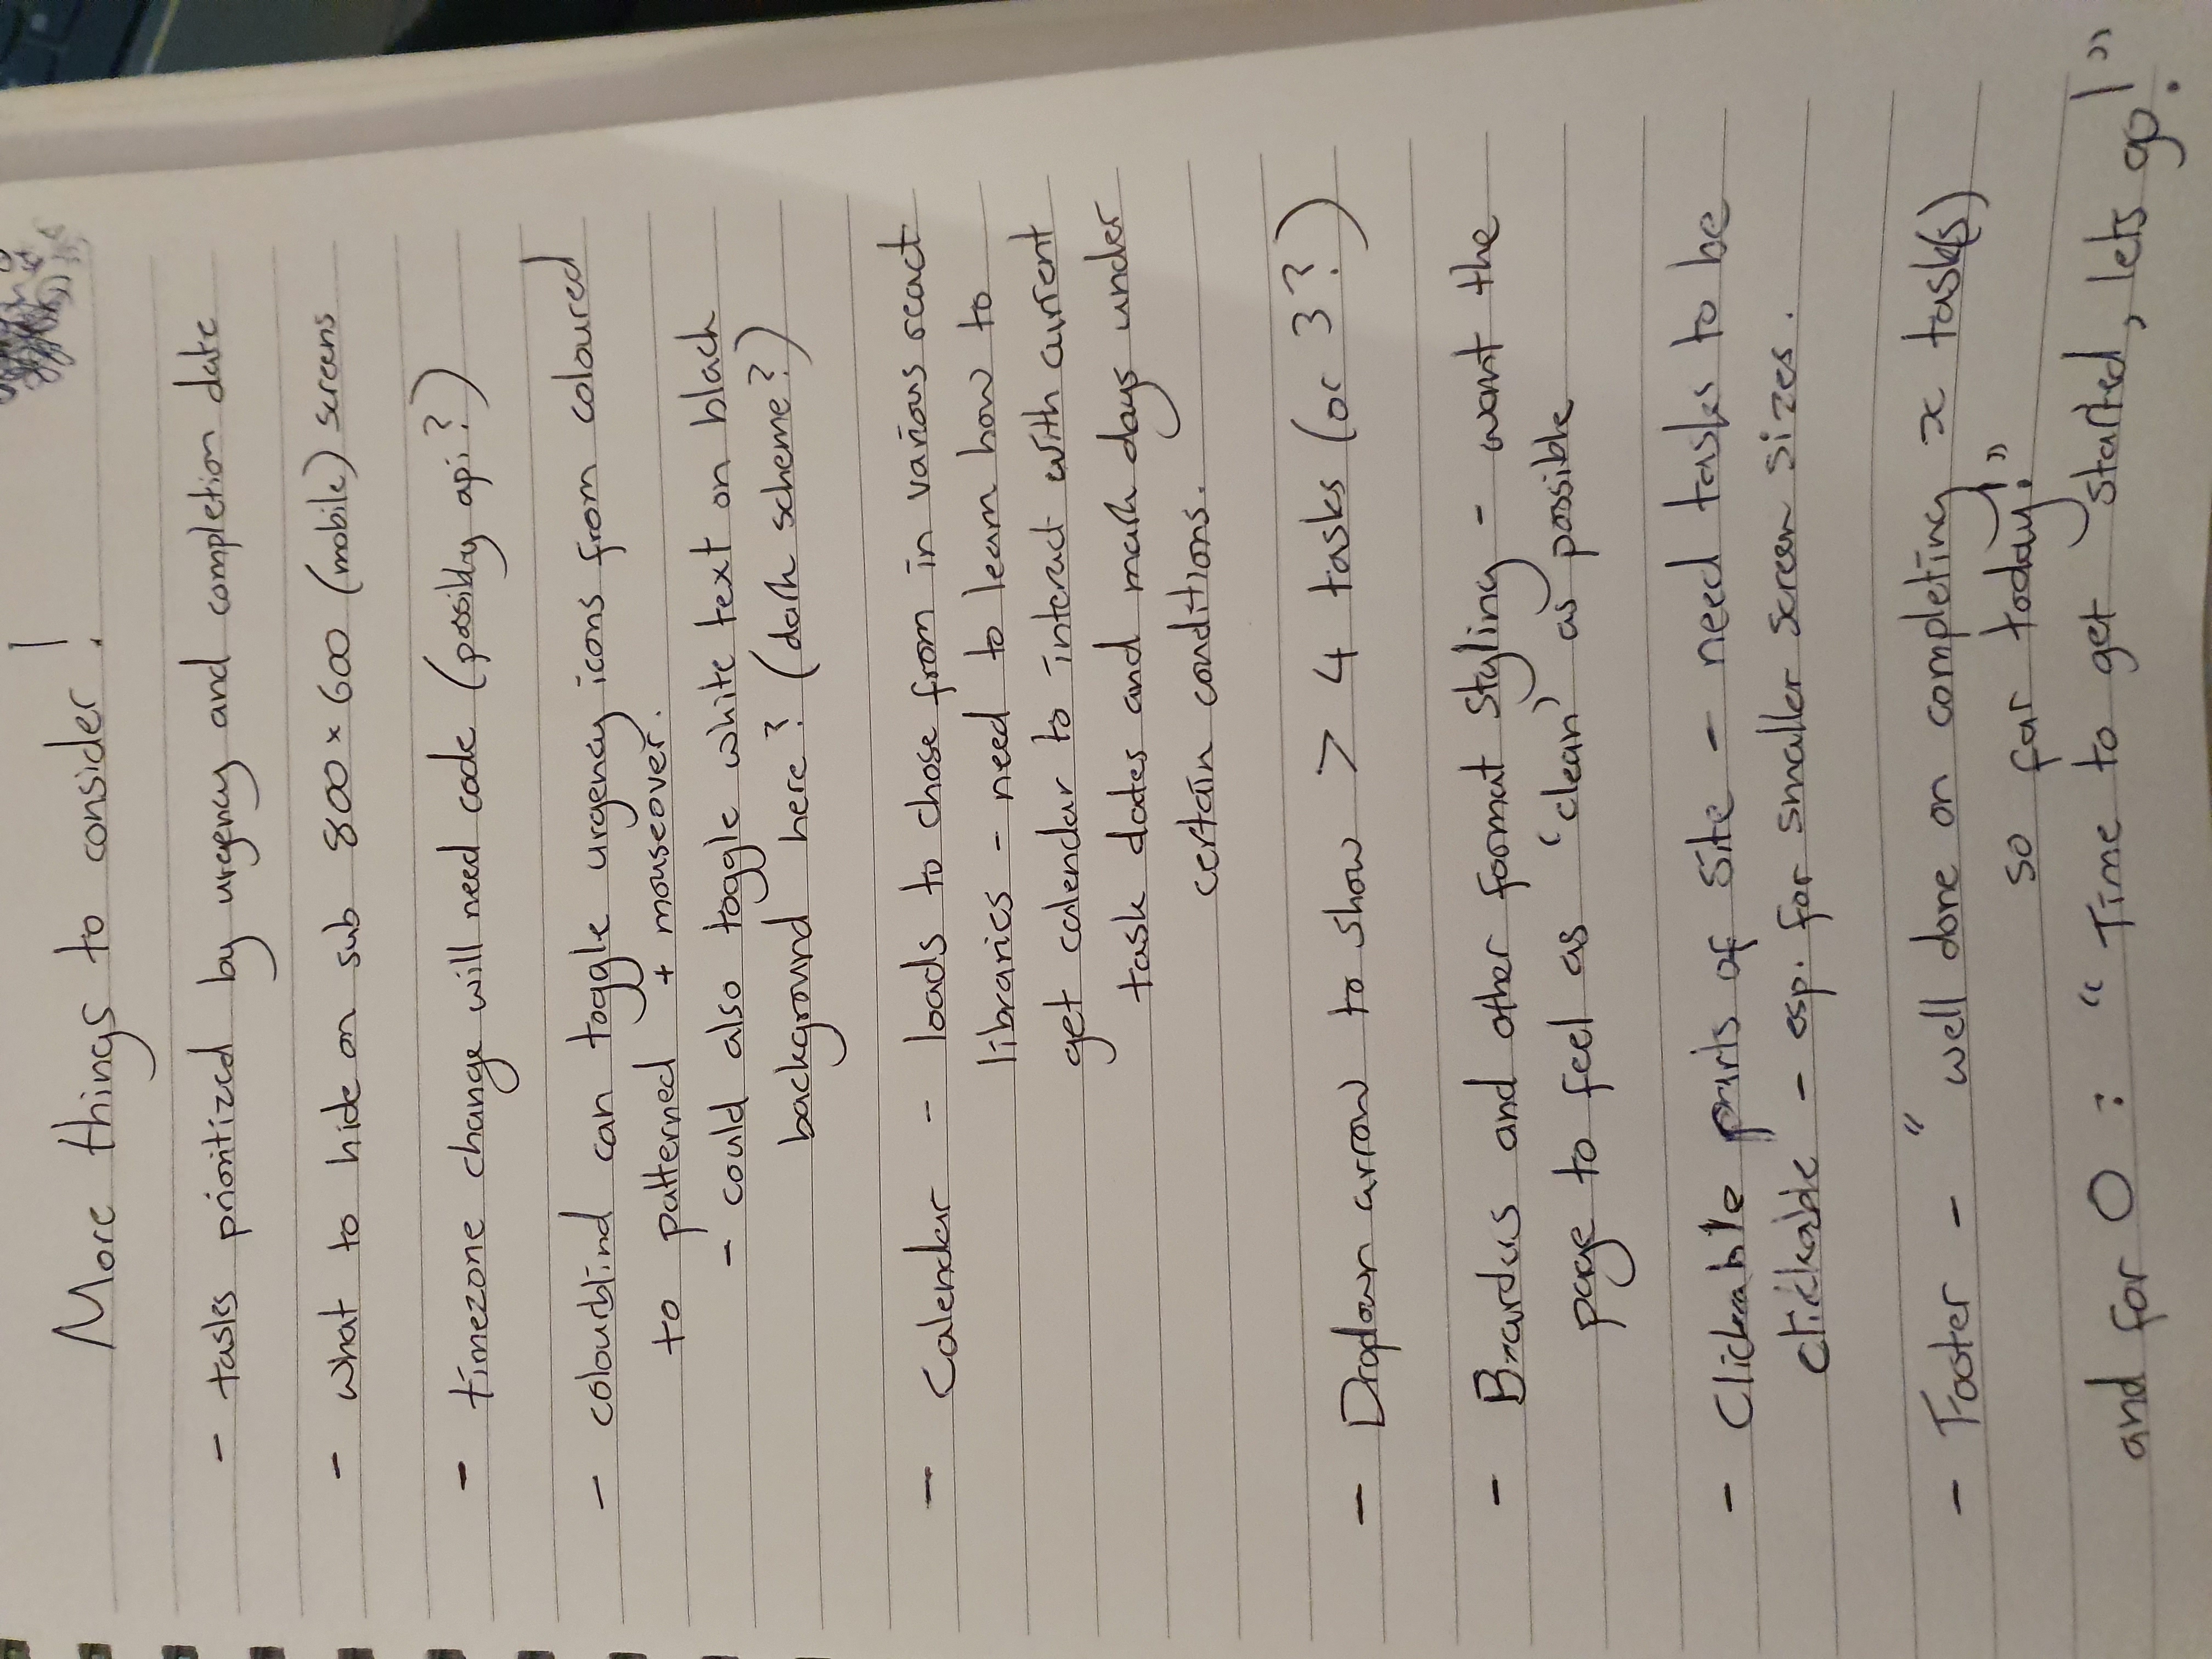 More things to consider!
- tasks prioritized by urgency and completion date
- what to hide on sub 800 x 600 (mobile) screens
- timezone change will need code (possibly api?)
- colourblind can toggle urgency icons from coloured
to patterned + mouseover.
- could also toggle white text on black
background here? (dark scheme?)
- Calendar - loads to chose from in various react
libraries - need to learn how to
get calendar to interact with current
task dates and mark days under
certain conditions.
- Dropdown arrow to show > 4 tasks (or 3?)
- Boarders and other format styling - want the
page to feel as 'clean' as possible
- Clickable parts of site - need tasks to be
clickable - esp. for smaller screen sizes.
- Footer - "well done on completing x task(s)
so far today!"
and for 0 : "Time to get started, lets go!"